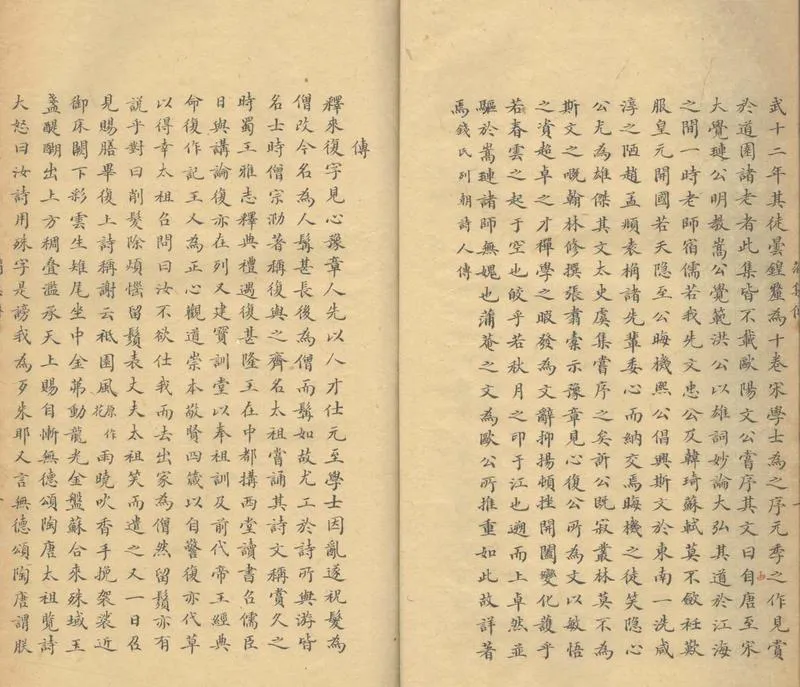 武十二年其徒曇鍠釐為十卷宋學士為之序元季之作見賞
於道園諸老者此集皆不載歐陽文公嘗序其文曰自唐至宋
大覺璉公明教嵩公覺範洪公以雄詞妙論大弘其道於江海
之間一時老師宿儒若我先文忠公及韓琦蘇軾莫不斂衽歎
服皇元開國若天隱至公晦機熙公倡興斯文於東南一洗咸
淳之陋趙孟頫袁桷諸先輩委心而納交焉晦機之徒笑隱心
公尤為雄傑其文太史虞集嘗序之矣訢公既寂叢林莫不為
斯文之嘅翰林修撰張翥寄示豫章見心復公所為文以敏悟
之資超卓之才禪學之暇發為文辭抑揚頓挫開闔變化蘐乎
若春雲之起于空也皎乎若秋月之印于江也遡而上卓然並
驅於嵩璉諸師無媿也蒲菴之文為歐公所推重如此故詳著
焉錢氏列朝詩人傳
傳
釋來復字見心豫章人先以人才仕元至學士因亂遂祝髮為
僧改今名為人鬚甚長後為僧而鬚如故尤工於詩所與游皆
名士時僧宗泐著稱復與之齊名太祖嘗誦其詩文稱賞久之
時蜀王雅志釋典禮遇復甚隆王在中都搆西堂讀書召儒臣
日與講論復亦在列又建寶訓堂以奉祖訓及前代帝王經典
命復作記王又為正心觀道崇本敬賢四箴以自警復亦代草
以得幸太祖召問曰汝不欲仕我而去出家為僧然留鬚亦有
說乎對曰削髮除煩惱留鬚表丈夫太祖笑而遣之又一日召
見賜膳畢復上詩稱謝云祗園風原作花雨曉吹香手挽袈裟近
御床闕下彩雲生雉尾坐中金茀動龍光金盤蘇合來殊域玉
盞醍醐出上方稠疊濫承天上賜自慚無德頌陶唐太祖覽詩
大怒曰汝詩用殊字是謗我為歹朱耶又言無德頌陶唐謂朕